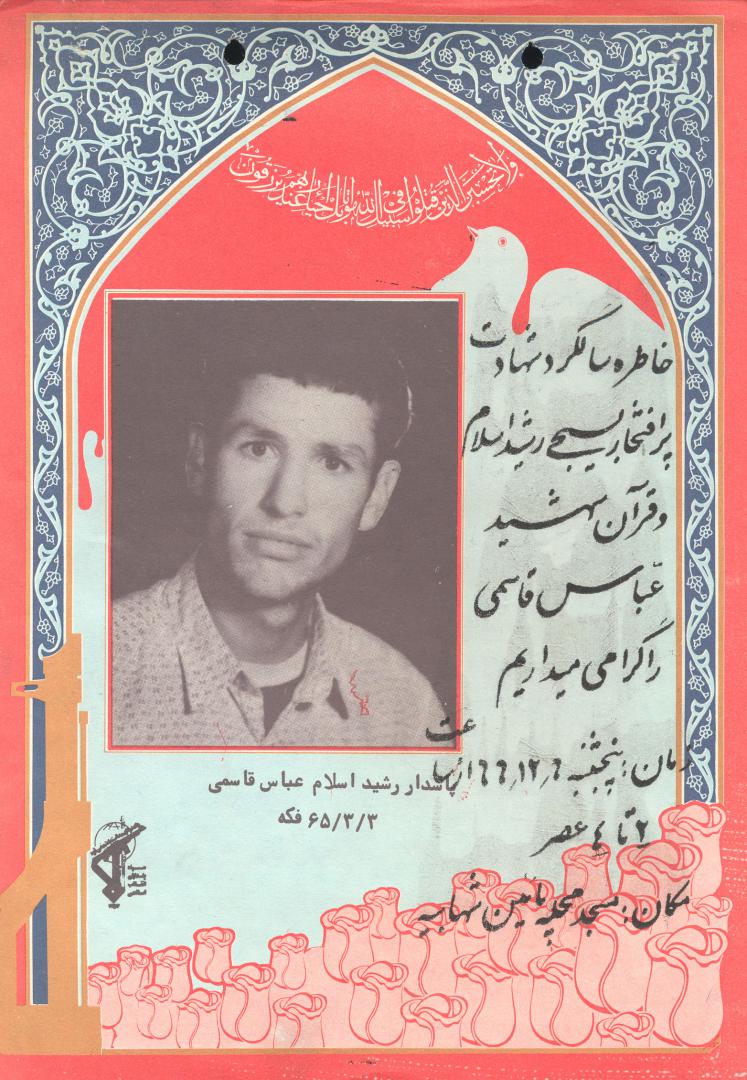 ولا تحسبن الذین قتلوا فی سبیل الله امواتا بل احیاء عند ربهم یرزقون
خاطره سالگرد شهادت
پر افتخار بسیجی رشید اسلام
و قرآن شهید
عباس قاسمی
را گرامی میداریم
زمان: پنجشنبه ۶ر۱۲ر۶۶ از ساعت
۲ تا ٤ عصر
مکان: مسجد محله پائین شهابیه
پاسدار رشید اسلام عباس قاسمی
۶۵/۳/۳ فکه